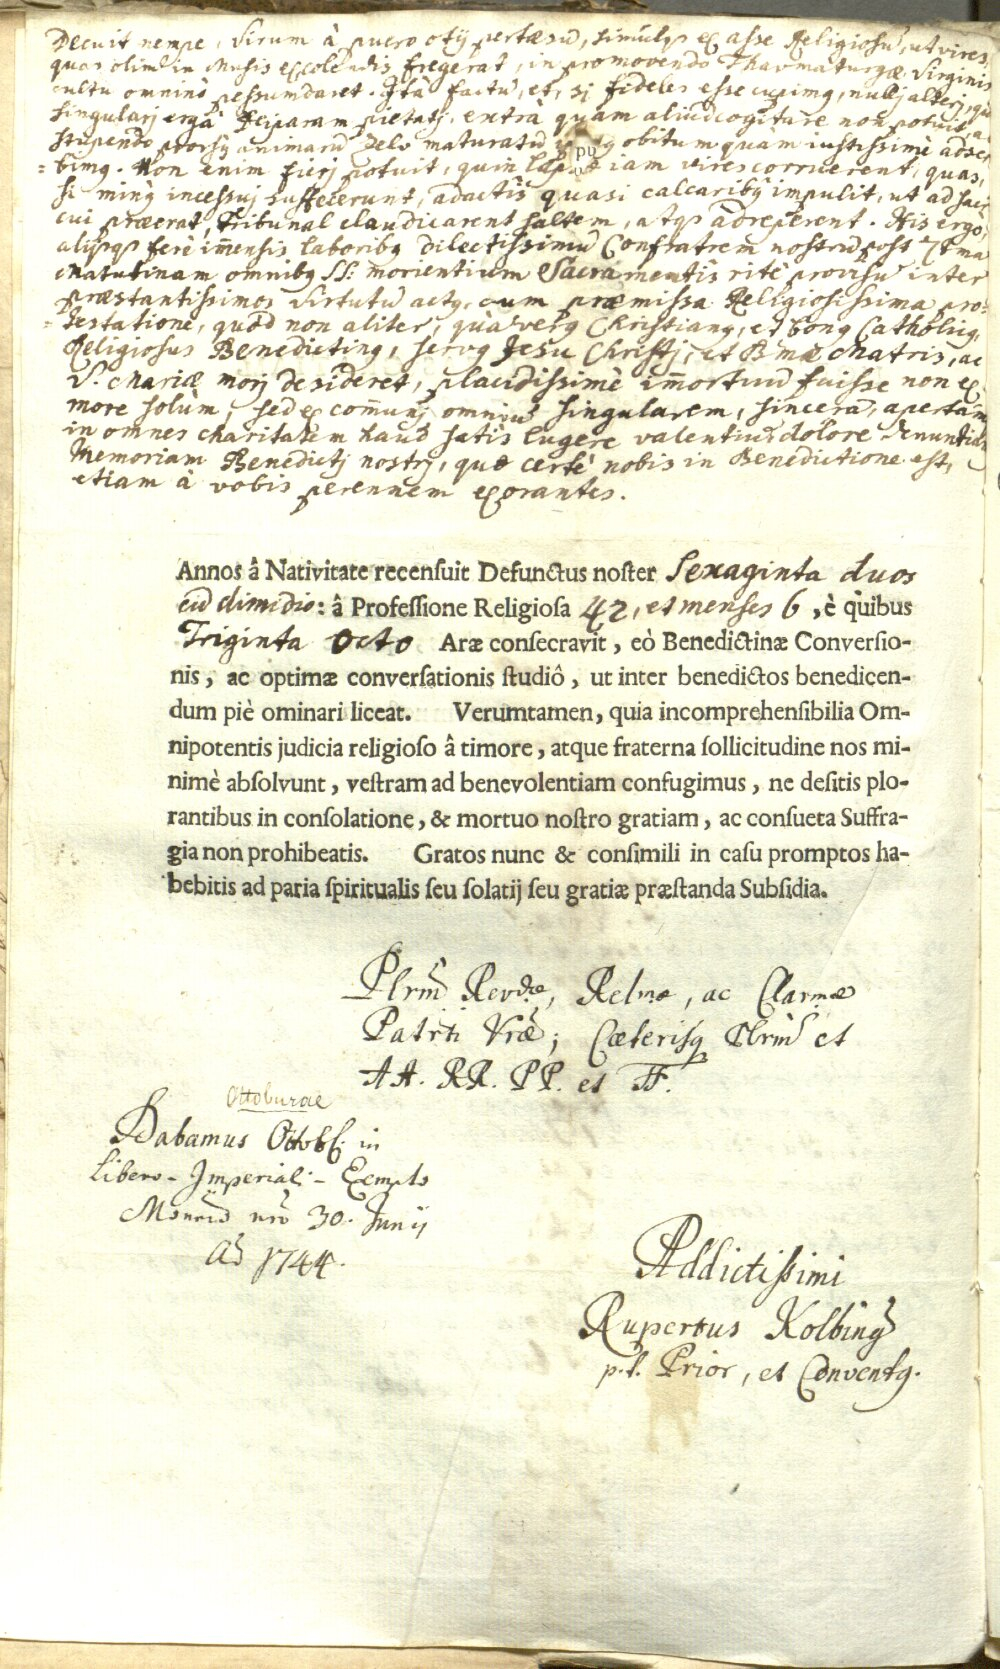 Decuit nempe, Virum à puero otij pertæsũ, simulqꝫ ex asse Religiosũ, ut vires,
quas olim in Musis excolendis fregerat, in promovendo Thaumaturgæ Virginis
cultu omninò pessumdaret. Ità factũ, et, si fideles esse cupimꝰ, nullj alterj, quàm
singularj ergà Deiparam pietatj, extrà quam aliud cogitare non potuit, ac
stupendo prorsꝰ animarũ Zelo maturatũ obitum quàm iustissimè adscri-
=bimꝰ. Non enim fierj potuit, quin iam vires corruerent, quas,
si minꝰ incessuj suffecerunt, adactis quasi calcaribꝰ impulit, ut ad sacrũ
cui præerat, Tribunal claudicarent saltem, atqꝫ adreperent. His ergò,
alijsqꝫ ferè im̃ensis laboribꝰ dilectissimũ Confratrem nostrũ post 7tmã
Matutinam omnibꝰ SS: morientium Sacramentis ritè provisũ inter
præstantissimos Virtutũ actꝰ, cum præmissa Religiosissima pro-
=testatione, quòd non aliter, quà verꝰ Christianꝰ, et bonꝰ Catholicꝰ,
Religiosus Benedictinꝰ, servꝰ Jesu Christj, et B:mæ Matris, ac
V. Mariæ morj desideret, placidissimè im̃ortuũ fuisse non ex
more solùm, sed ex com̃unj omniũ singularem, sincerã, apertam
in omnes charitatem haud satis lugere valentiũ dolore denuntiam9
Memoriam Benedictj nostrj, quæ certè nobis in Benedictione est,
etiam à vobis perennem exorantes.
Annos â Nativitate recensuit Defunctus noster Sexaginta duos
cũ dimidio: â Professione Religiosa 42, et menses 6, è quibus
Triginta Octo Aræ consecravit, eò Benedictinæ Conversio-
nis, ac optimæ conversationis studiô, ut inter benedictos benedicen-
dum piè ominari liceat. Verumtamen, quia incomprehensibilia Om-
nipotentis judicia religioso â timore, atque fraterna sollicitudine nos mi-
nimè absolvunt, vestram ad benevolentiam confugimus, ne desitis plo-
rantibus in consolatione, & mortuo nostro gratiam, ac consueta Suffra-
gia non prohibeatis. Gratos nunc & consimili in casu promptos ha-
bebitis ad paria spiritualis seu solatij seu gratiæ præstanda Subsidia.
Plrm̃ Revdæ, Relmæ, ac Clarmæ
Patrti Vræ; Cæterisqꝫ Plrm̃ et
AA. RR. PP. et FF.
Ottoburae
Dabamus Ottobl: in
Libero-Imperiali-Exempto
Monrio nrõ 30. Junij
Aõ 1744.
Addictissimi
Rupertus Kolbingꝰ
p.t. Prior, et Conventꝰ.